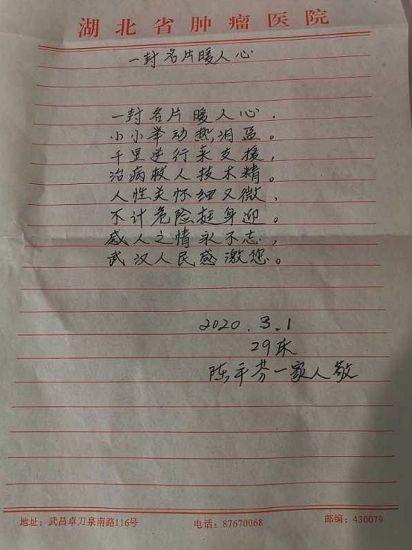 湖北省肿瘤医院
一封名片暖人心
一封名片暖人心，
小小举动热泪盈。
千里逆行来支援，
治病救人技术精。
人性关怀细又微，
不计危险挺身迎。
感人之情永不忘，
武汉人民感激您。
2020.3.1
29床
陈平芬一家人敬
地址：武昌卓刀泉南路116号
电话：87670068
邮编：430079